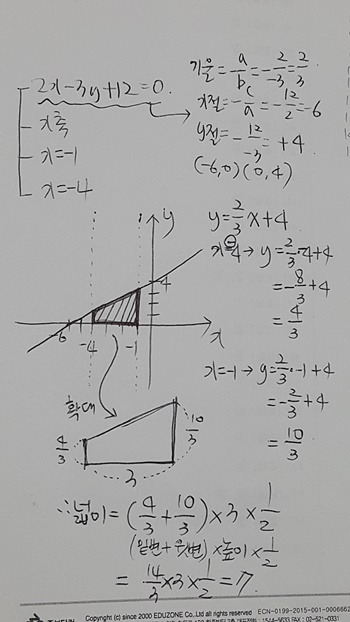 2x-3y+12=0.
x축
x=-1
x=-4
기울=-a/b=-2/-3=2/3
x절=-c/a=-12/2=-6
y절=-12/-3=+4
(-6,0)(0,4)
y=2/3x+4
x=-4→y=2/3·-4+4
=-8/3+4
=4/3
x=-1→y=2/3·-1+4
=-2/3+4
=10/3
y
4
-6 -4 -1 x
확대
4/3 10/3
3
∴넓이=(4/3+10/3)×3×1/2
(밑변+윗변)×높이×1/2
=14/3×3×1/2=7.
Copyright (c) since 2000 EDUZONE Co.,Ltd all rights reserved ECN-0199-2015-001-000666